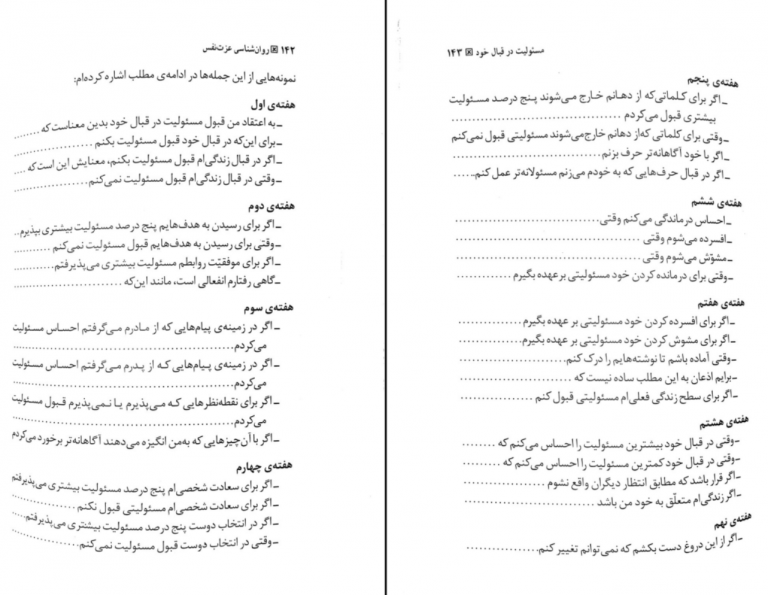 ۱۴۲ ※ روان‌شناسی عزت‌نفس
نمونه‌هایی از این جمله‌ها در ادامه‌ی مطلب اشاره کرده‌ام:
هفته‌ی اول
ـ به اعتقاد من قبول مسئولیت در قبال خود بدین معناست که ......
ـ برای این‌که در قبال خود قبول مسئولیت بکنم ................
ـ اگر در قبال زندگی‌ام قبول مسئولیت بکنم، معنایش این است که ....
ـ وقتی در قبال زندگی‌ام قبول مسئولیت نمی‌کنم ...............
هفته‌ی دوم
ـ اگر برای رسیدن به هدف‌هایم پنج درصد مسئولیت بیشتری بپذیرم..
ـ وقتی برای رسیدن به هدف‌هایم قبول مسئولیت نمی‌کنم ..........
ـ اگر برای موفقیّت روابطم مسئولیت بیشتری می‌پذیرفتم..........
ـ گاهی رفتارم انفعالی است، مانند این‌که ....................
هفته‌ی سوم
ـ اگر در زمینه‌ی پیام‌هایی که از مادرم می‌گرفتم احساس مسئولیت
می‌کردم. ..............................
ـ اگر در زمینه‌ی پیام‌هایی که از پدرم می‌گرفتم احساس مسئولیت
می‌کردم. ..............................
ـ اگر برای نقطه‌نظرهایی که می‌پذیرم یا نمی‌پذیرم قبول مسئولیت
می‌کردم. ..............................
ـ اگر با آن‌چیزهایی که به‌من انگیزه می‌دهند آگاهانه‌تر برخورد می‌کردم
هفته‌ی چهارم
ـ اگر برای سعادت شخصی‌ام پنج درصد مسئولیت بیشتری می‌پذیرفتم
ـ اگر برای سعادت شخصی‌ام مسئولیتی قبول نکنم ...............
ـ اگر در انتخاب دوست پنج درصد مسئولیت بیشتری می‌پذیرفتم....
ـ وقتی در انتخاب دوست قبول مسئولیت نمی‌کنم ................
مسئولیت در قبال خود ※ ۱۴۳
هفته‌ی پنجم
ـ اگر برای کلماتی‌که از دهانم خارج می‌شوند پنج درصد مسئولیت
بیشتری قبول می‌کردم ..............................
ـ وقتی برای کلماتی که‌از دهانم خارج‌می‌شوند مسئولیتی قبول نمی‌کنم
ـ اگر با خود آگاهانه‌تر حرف بزنم ......................
ـ اگر در قبال حرف‌هایی که به خودم می‌زنم مسئولانه‌تر عمل کنم.....
هفته‌ی ششم
ـ احساس درماندگی می‌کنم وقتی. ......................
ـ افسرده می‌شوم وقتی ..............................
ـ مشوّش می‌شوم وقتی ..............................
ـ وقتی برای درمانده کردن خود مسئولیتی برعهده بگیرم ..........
هفته‌ی هفتم
ـ اگر برای افسرده کردن خود مسئولیتی بر عهده بگیرم ............
ـ اگر برای مشوش کردن خود مسئولیتی بر عهده بگیرم............
ـ وقتی آماده باشم تا نوشته‌هایم را درک کنم. ..................
ـ برایم اذعان به این مطلب ساده نیست که ....................
ـ اگر برای سطح زندگی فعلی‌ام مسئولیتی قبول کنم ............
هفته‌ی هشتم
ـ وقتی در قبال خود بیشترین مسئولیت را احساس می‌کنم که ........
ـ وقتی در قبال خود کمترین مسئولیت را احساس می‌کنم که ........
ـ اگر قرار باشد که مطابق انتظار دیگران واقع نشوم ............
ـ اگر زندگی‌ام متعلّق به خود من باشد ......................
هفته‌ی نهم
ـ اگر از این دروغ دست بکشم که نمی‌توانم تغییر کنم. ............